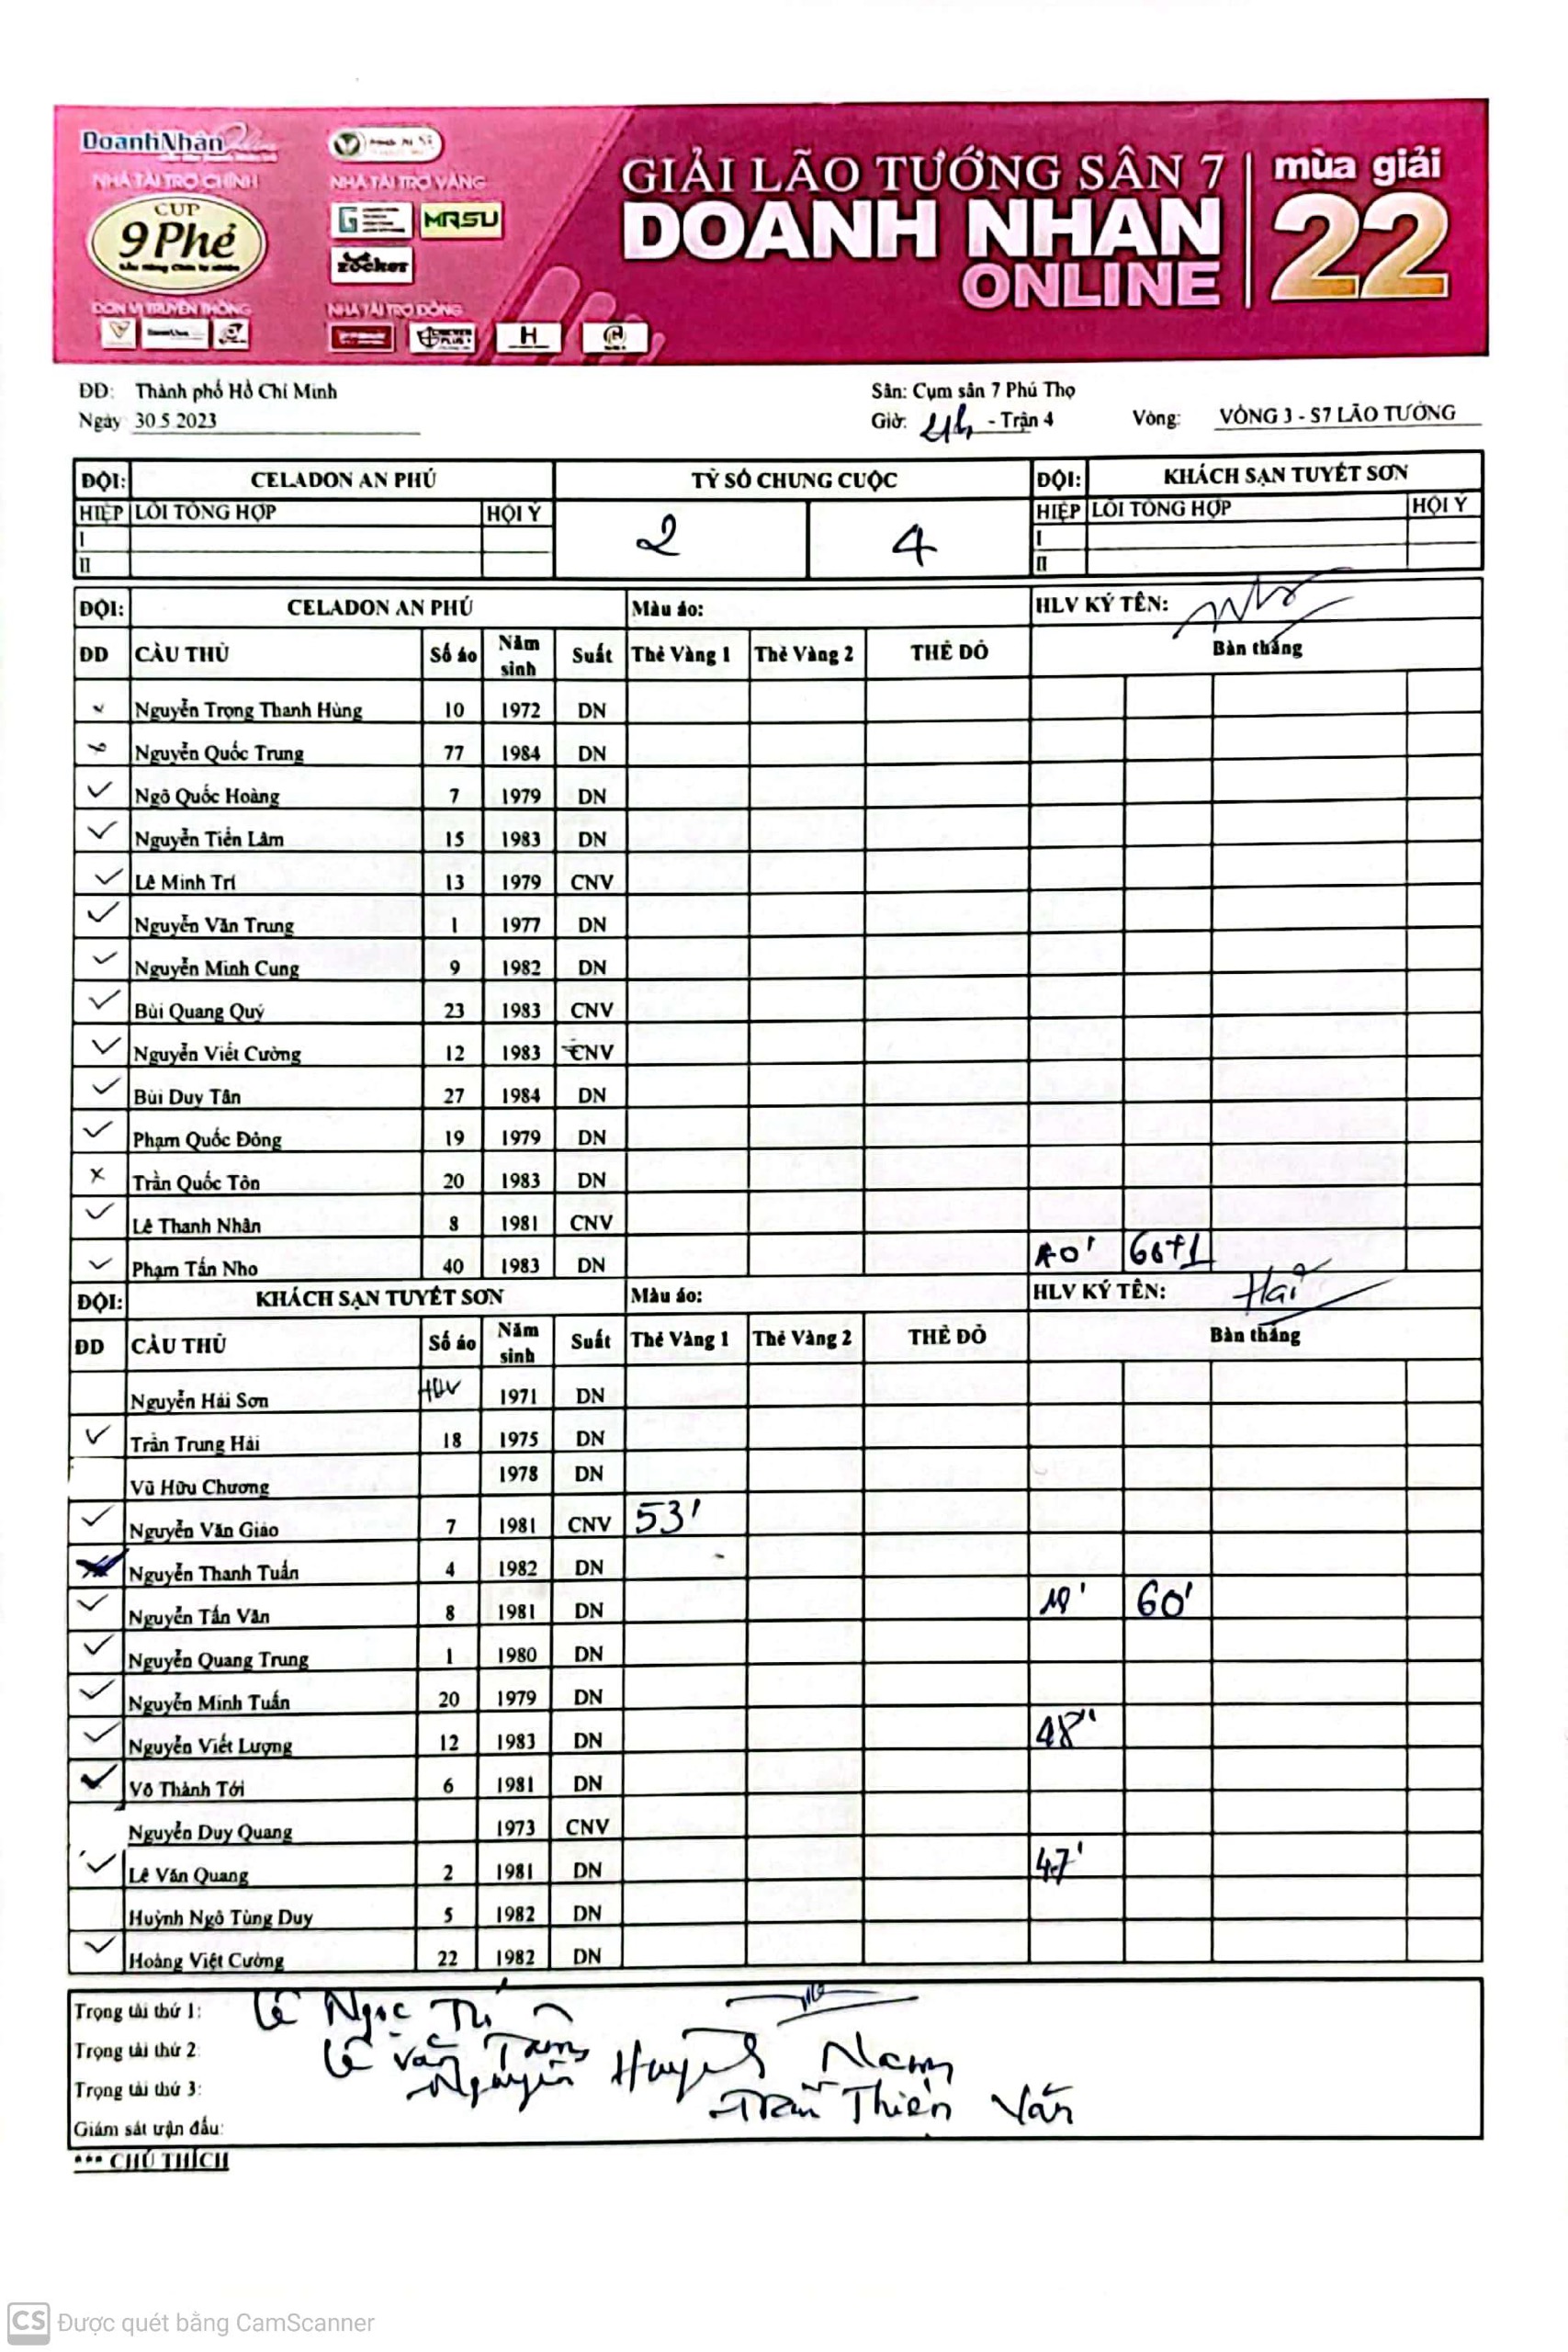 DoanhNhân Online
NHÀ TÀI TRỢ CHÍNH
NHÀ TÀI TRỢ VÀNG
CUP
9 Phẻ
MRSU
zocker
ĐƠN VỊ TRUYỀN THÔNG
NHÀ TÀI TRỢ ĐỒNG
H
GIẢI LÃO TƯỚNG SÂN 7
DOANH NHAN
ONLINE
mùa giải
22
ĐD: Thành phố Hồ Chí Minh
Sân: Cụm sân 7 Phú Thọ
Ngày 30.5.2023
Giờ: 21h - Trận 4
Vòng: VÒNG 3 - S7 LÃO TƯỚNG
ĐỘI: CELADON AN PHÚ TỶ SỐ CHUNG CUỘC ĐỘI: KHÁCH SẠN TUYẾT SƠN
HIỆP LỖI TỔNG HỢP HỘI Ý 2 4 HIỆP LỖI TỔNG HỢP HỘI Ý
I I
II II
ĐỘI: CELADON AN PHÚ Màu áo: HLV KÝ TÊN:
ĐD CẦU THỦ Số áo Năm sinh Suất Thẻ Vàng 1 Thẻ Vàng 2 THẺ ĐỎ Bàn thắng
Nguyễn Trọng Thanh Hùng 10 1972 DN
Nguyễn Quốc Trung 77 1984 DN
Ngô Quốc Hoàng 7 1979 DN
Nguyễn Tiến Lâm 15 1983 DN
Lê Minh Trí 13 1979 CNV
Nguyễn Văn Trung 1 1977 DN
Nguyễn Minh Cung 9 1982 DN
Bùi Quang Quý 23 1983 CNV
Nguyễn Viết Cường 12 1983 CNV
Bùi Duy Tân 27 1984 DN
Phạm Quốc Đông 19 1979 DN
Trần Quốc Tôn 20 1983 DN
Lê Thanh Nhân 8 1981 CNV
Phạm Tấn Nho 40 1983 DN 60+1
ĐỘI: KHÁCH SẠN TUYẾT SƠN Màu áo: HLV KÝ TÊN: Hải
ĐD CẦU THỦ Số áo Năm sinh Suất Thẻ Vàng 1 Thẻ Vàng 2 THẺ ĐỎ Bàn thắng
Nguyễn Hải Sơn HLV 1971 DN
Trần Trung Hải 18 1975 DN
Vũ Hữu Chương 1978 DN
Nguyễn Văn Giáo 7 1981 CNV 53'
Nguyễn Thanh Tuấn 4 1982 DN
Nguyễn Tấn Vân 8 1981 DN 60'
Nguyễn Quang Trung 1 1980 DN
Nguyễn Minh Tuấn 20 1979 DN
Nguyễn Viết Lượng 12 1983 DN 48'
Võ Thành Tới 6 1981 DN
Nguyễn Duy Quang 1973 CNV
Lê Văn Quang 2 1981 DN 47'
Huỳnh Ngô Tùng Duy 5 1982 DN
Hoàng Việt Cường 22 1982 DN
Trọng tài thứ 1: Lê Ngọc
Trọng tài thứ 2: Lê Văn
Trọng tài thứ 3: Nguyễn Huỳnh Nam
Giám sát trận đấu: Trần Thiên Văn
*** CHÚ THÍCH
CS Được quét bằng CamScanner